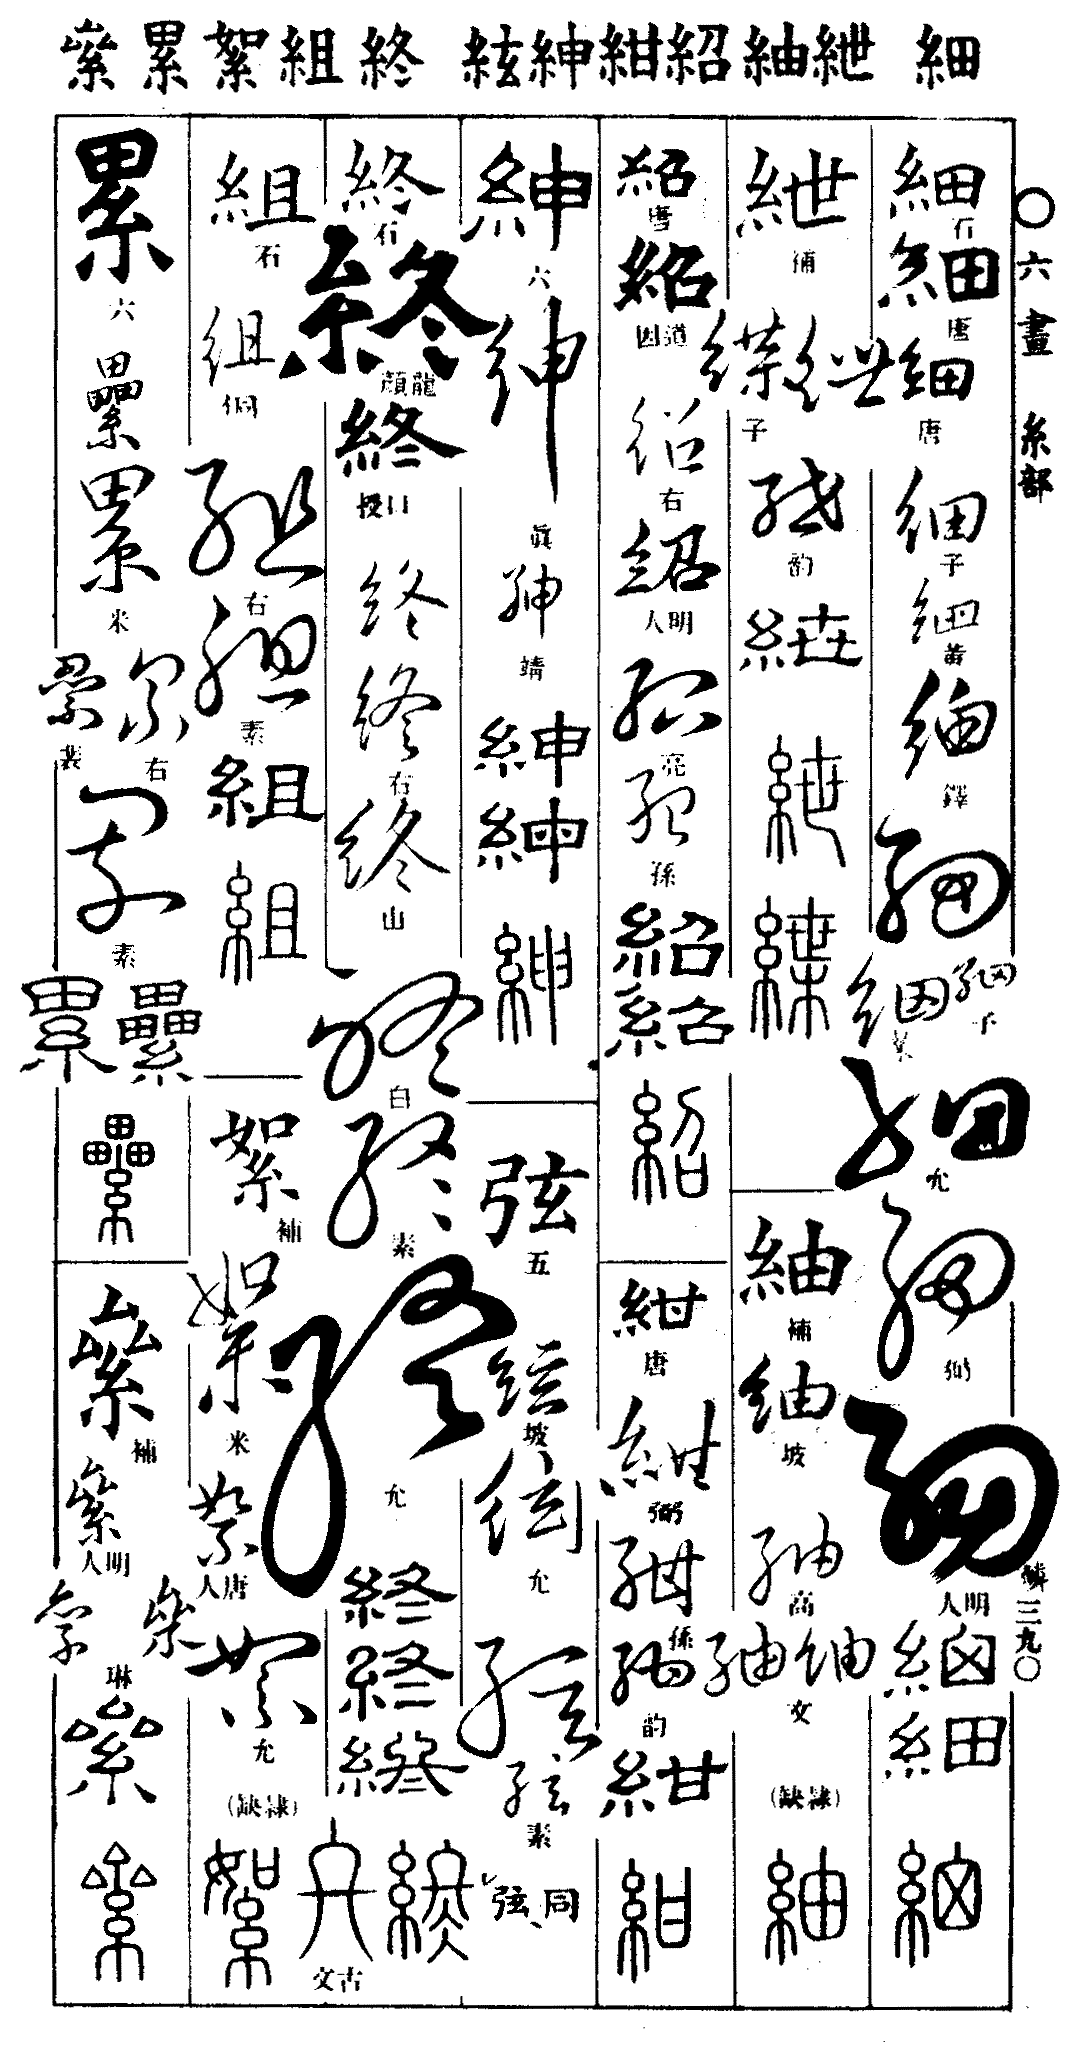 細 紲紬 紹紺紳絃 終 組 絮 累 絫
〇六畫 糸部
三九〇
細石細唐細唐細子細黃細鐸細細于細米細允細弼細明人細細細
紲補紲緤子紲韵紲紲緤
紬補紬坡紬高紬紬文(隸缺)紬
紹唐紹道因紹右紹明人紹亮紹孫紹紹紹
紺唐紺弼紺孫紺韵紺紺
紳六紳眞紳靖紳紳紳
弦五絃坡絃允絃絃素同弦
終石終龍顏終口授終終右終山終白終素終允終終終終古文
組石組侗組右組素組組
絮補絮米絮唐人絮允(隸缺)絮
累六纍累米累右累裴累素纍累纍
絫補絫明人絫絫琳絫絫